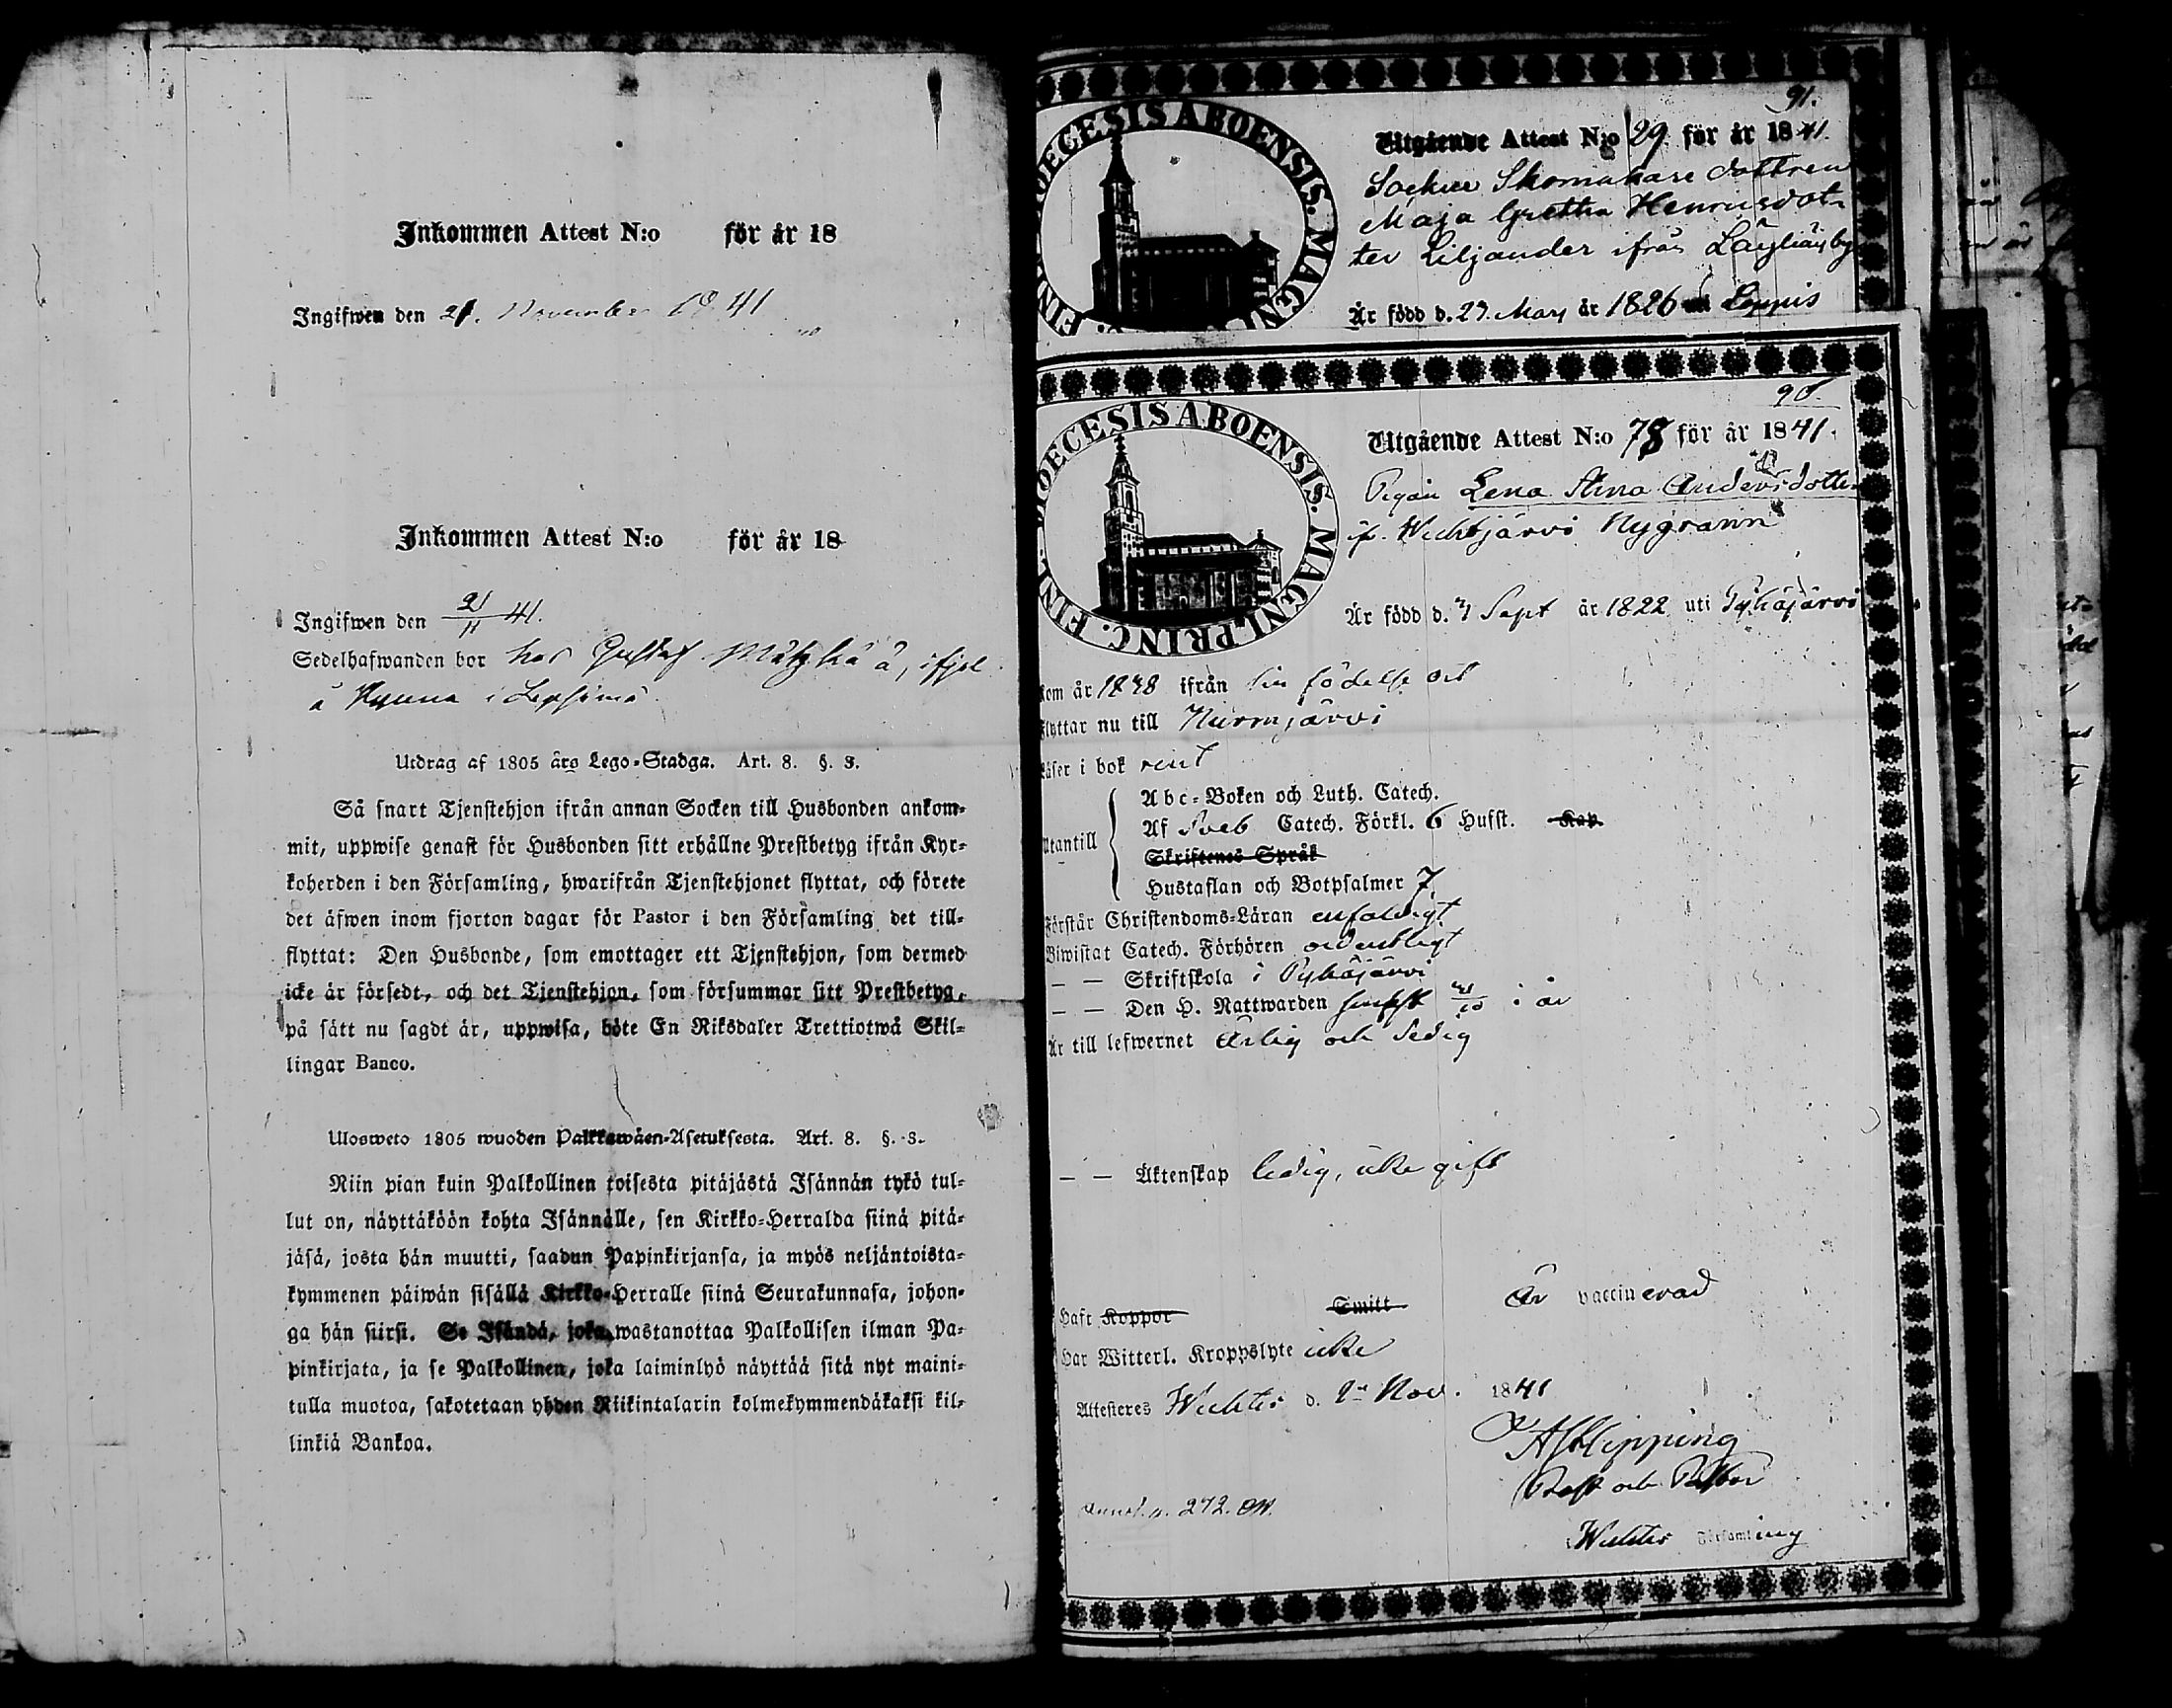 Inkommen Attest N:o för år 18
Ingifwen den 21. November 1841
Inkommen Attest N:o för år 18
Ingifwen den 21/11 41.
Sedelhafwanden bor hos Gustaf
å i Lepsämä
Utdrag af 1805 års Lego-Stadga. Art. 8. §. 3.
Så snart Tjenstehjon ifrån annan Socken till Husbonden ankom-
mit, uppwise genast för Husbonden sitt erhållne Prestbetyg ifrån Kyr-
koherden i den Församling, hwarifrån Tjenstehjonet flyttat, och förete
det äfwen inom fjorton dagar för Pastor i den Församling det till-
flyttat: Den Husbonde, som emottager ett Tjenstehjon, som dermed
icke är försedt, och det Tjenstehjon, som försummar sitt Prestbetyg,
på sätt nu sagdt är, uppwisa, böte En Riksdaler Trettiotwå Skil-
lingar Banco.
Ulosweto 1805 wuoden Palkkawäen-Asetuksesta. Art. 8. §. 3.
Niin pian kuin Palkollinen toisesta pitäjästä Isännän tykö tul-
lut on, näyttäköön kohta Isännälle, sen Kirkko-Herralda siinä pitä-
jäsä, josta hän muutti, saadun Papinkirjansa, ja myös neljäntoista-
kymmenen päiwän sisällä Kirkko-Herralle siinä Seurakunnasa, johon-
ga hän siirsi. Se Isändä, joka wastanottaa Palkollisen ilman Pa-
pinkirjata, ja se Palkollinen, joka laiminlyö näyttää sitä nyt maini-
tulla muotoa, sakotetaan yhden Riikintalarin kolmekymmendäkaksi kil-
linkiä Bankoa.
91.
DIOECESIS ABOENSIS. MAGNI
Utgående Attest N:o 29 för år 1841.
Socken Skomakare dottren
Maja Gretha Henricsdot-
ter Liljander ifrån by
Är född d. 27. Mars år 1826 uti Loppis
90.
DIOECESIS ABOENSIS. MAGNI PRINC. FINL.
Utgående Attest N:o 78 för år 1841.
Pigan Lena Stina Andersdotter
if. Wichtjärvi Nygrann
Är född d. Sept år 1822 uti Pyhäjärvi
Kom år 1838 ifrån sin födelse ort
Flyttar nu till Nurmjärvi
Läser i bok rent
Abc-Boken och Luth. Catech.
Utantill Af Sveb Catech. Förkl. 6 Hufst. Kap.
Skriftenes Språk
Hustaflan och Botpsalmer 7.
Förstår Christendoms-Läran enfaldigt
Biwistat Catech. Förhören ordentligt
— — Skriftskola i Pyhäjärvi
— — Den H. Nattwarden sinst i år
Är till lefwernet ärlig och sedig
— — Äktenskap ledig, icke gift
Haft Koppor Smitt Är vaccinerad
Har Witterl. Kroppslyte icke
Attesteres Wichtis d. Nov. 1841
Hipping
Prost och Pastor
272.
i Wichtis Församling